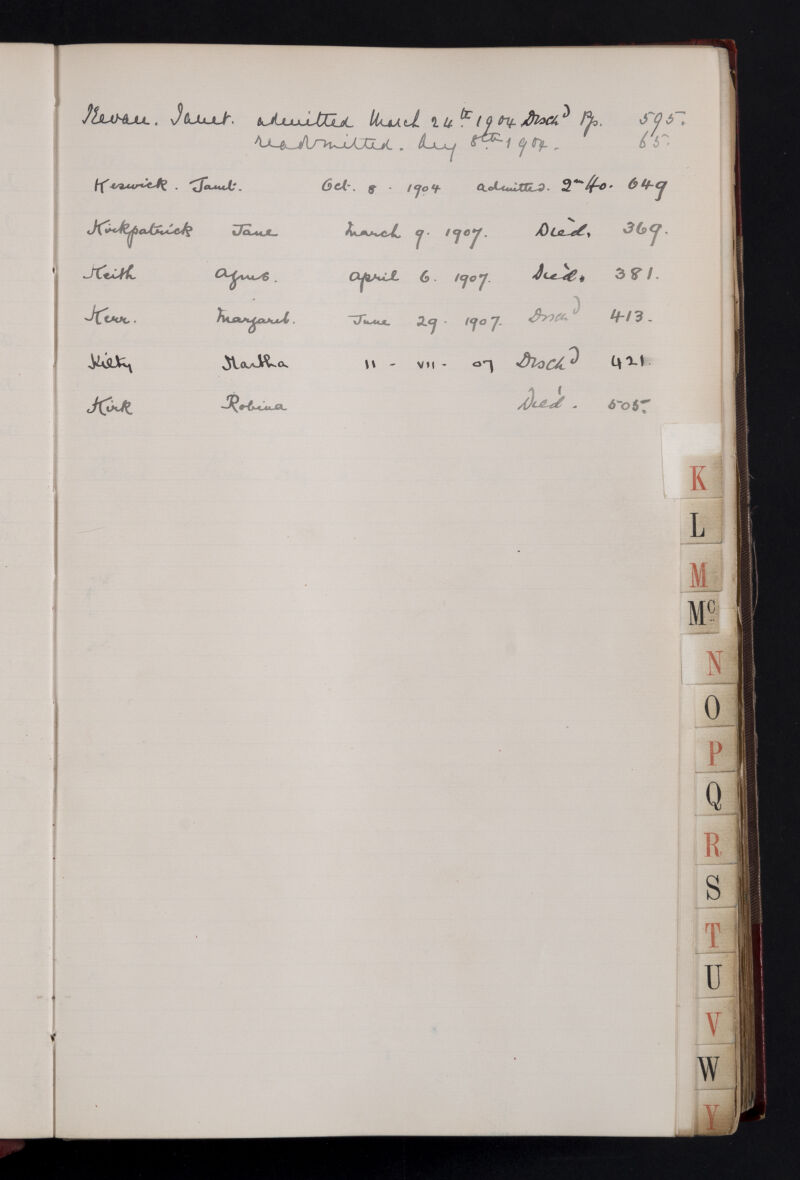 Kevan. Janet. admitted March 24th 1904 Dischd Pp. 595.
readmitted. Aug 8th 1904. 65.
Keswick. Janet. Oct. 8. 1904 admitted. 2nd Ho. 649
Kirkpatrick Jane March 9. 1907. Died. 369.
Keith Agnes. April 6. 1907. Died. 381.
Kerr. Margaret. June 29. 1907. Dischd 413.
Kilty Martha 11 - VII - 07 Dischd 421.
Kirk Robina Died. 505.
K
L
M
Mc
N
O
P
Q
R
S
T
U
V
W
Y